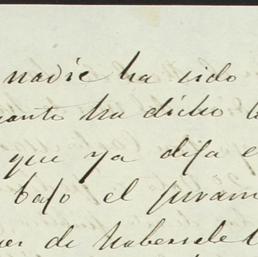 nadie ha sido
uanto ha dicho
que ya dija e
bajo el juram
de haberse le